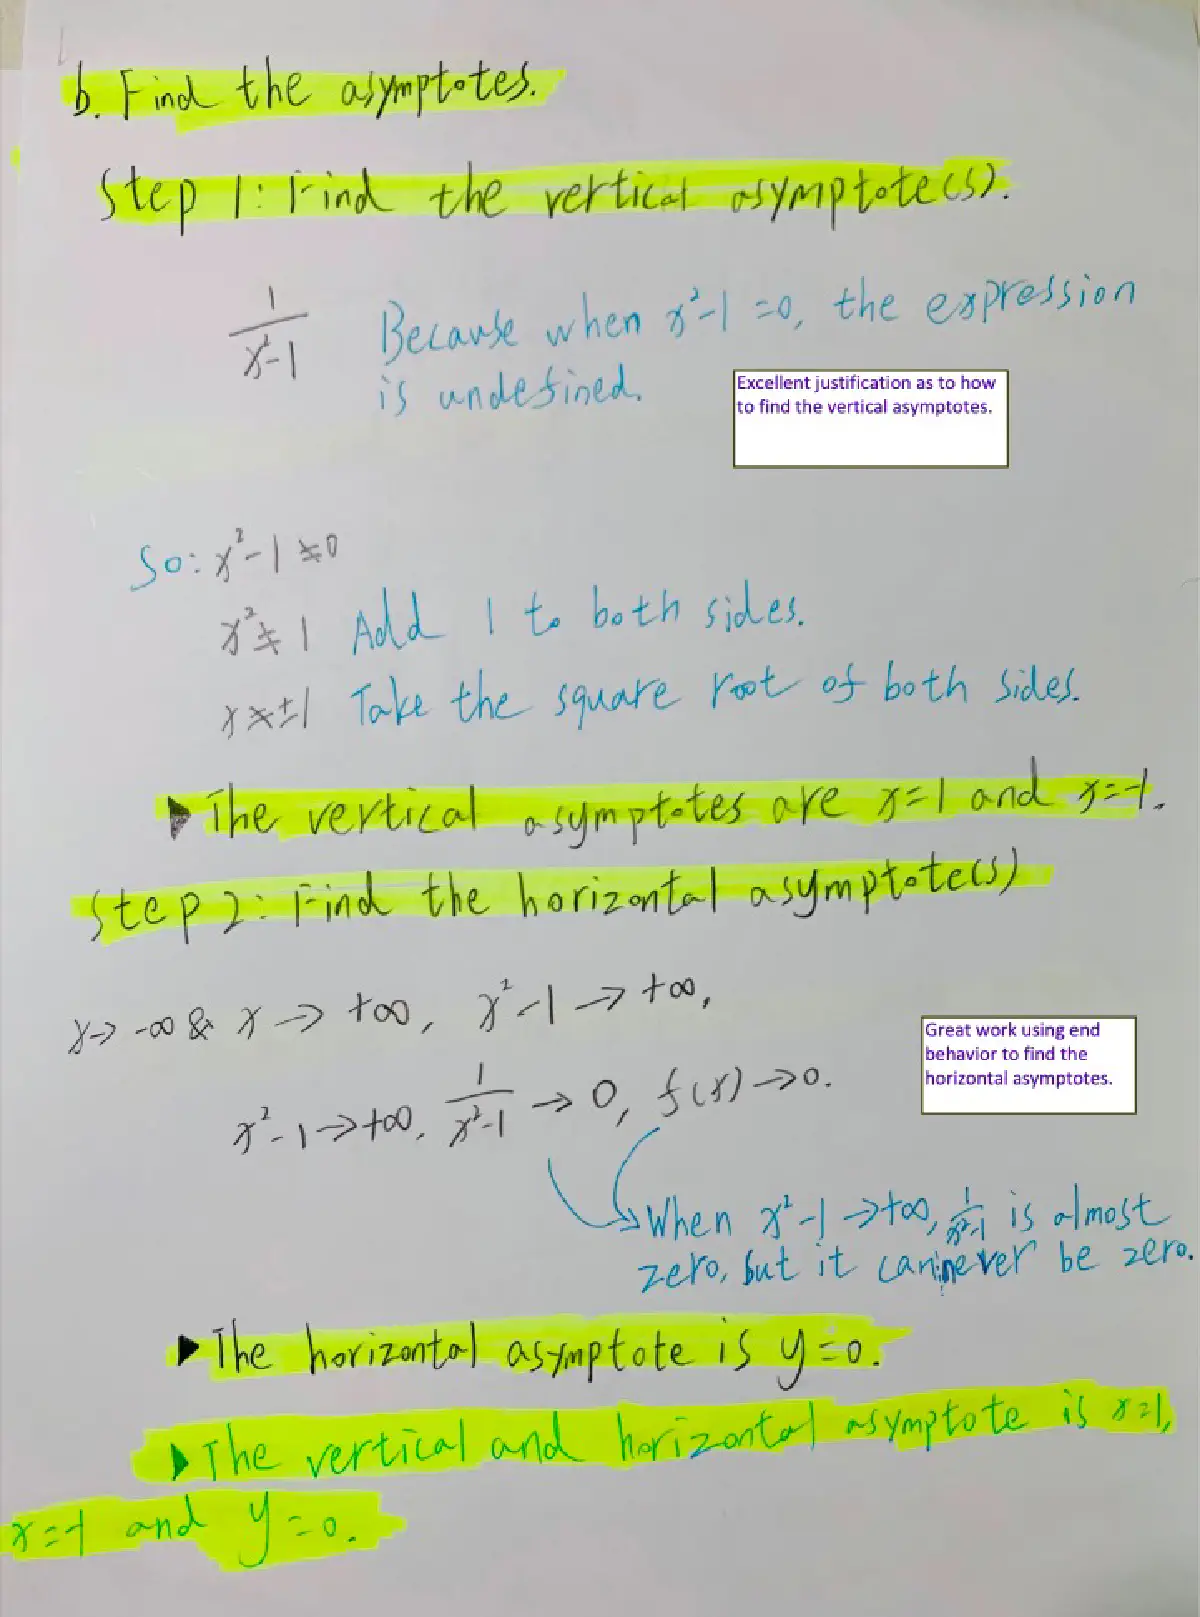 b. Find the asymptotes.
Step 1: Find the vertical asymptote(s).
1
x²-1
Because when x²-1=0, the expression
is undefined.
Excellent justification as to how
to find the vertical asymptotes.
So: x²-1≠0
x²≠1 Add 1 to both sides.
x≠±1 Take the square root of both sides.
▶ The vertical asymptotes are x=1 and x=-1.
Step 2: Find the horizontal asymptote(s)
x→-∞ & x→+∞, x²-1→+∞,
Great work using end
behavior to find the
horizontal asymptotes.
x²-1→+∞, 1/x²-1 → 0, f(x)→0.
When x²-1→+∞, 1/x²-1 is almost
zero, but it can never be zero.
▶ The horizontal asymptote is y=0.
▶ The vertical and horizontal asymptote is x=1,
x=-1 and y=0.